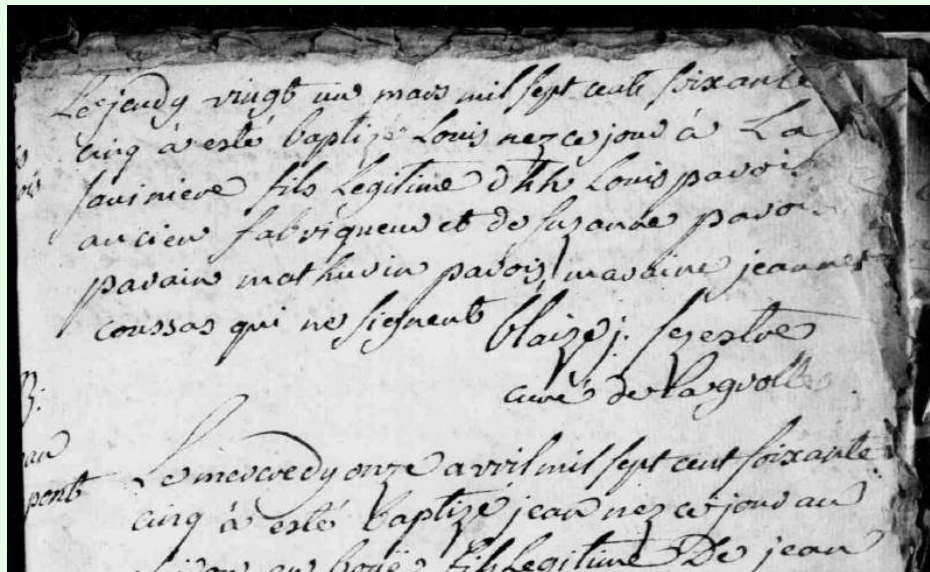 Le jeudy vingt un mars mil sept cent soixante
cinq à esté baptizé Louis nez ce jour à La
fils Legitime Louis pavois
ancien fabriqueur et de suzanne pavois
parain mathurin pavois, maraine jeanne
coussas qui ne signent blaize j.
curé de
Le mercredy onze avril mil sept cent soixante
cinq à esté baptizé jean nez ce jour au
fils Legitime De jean